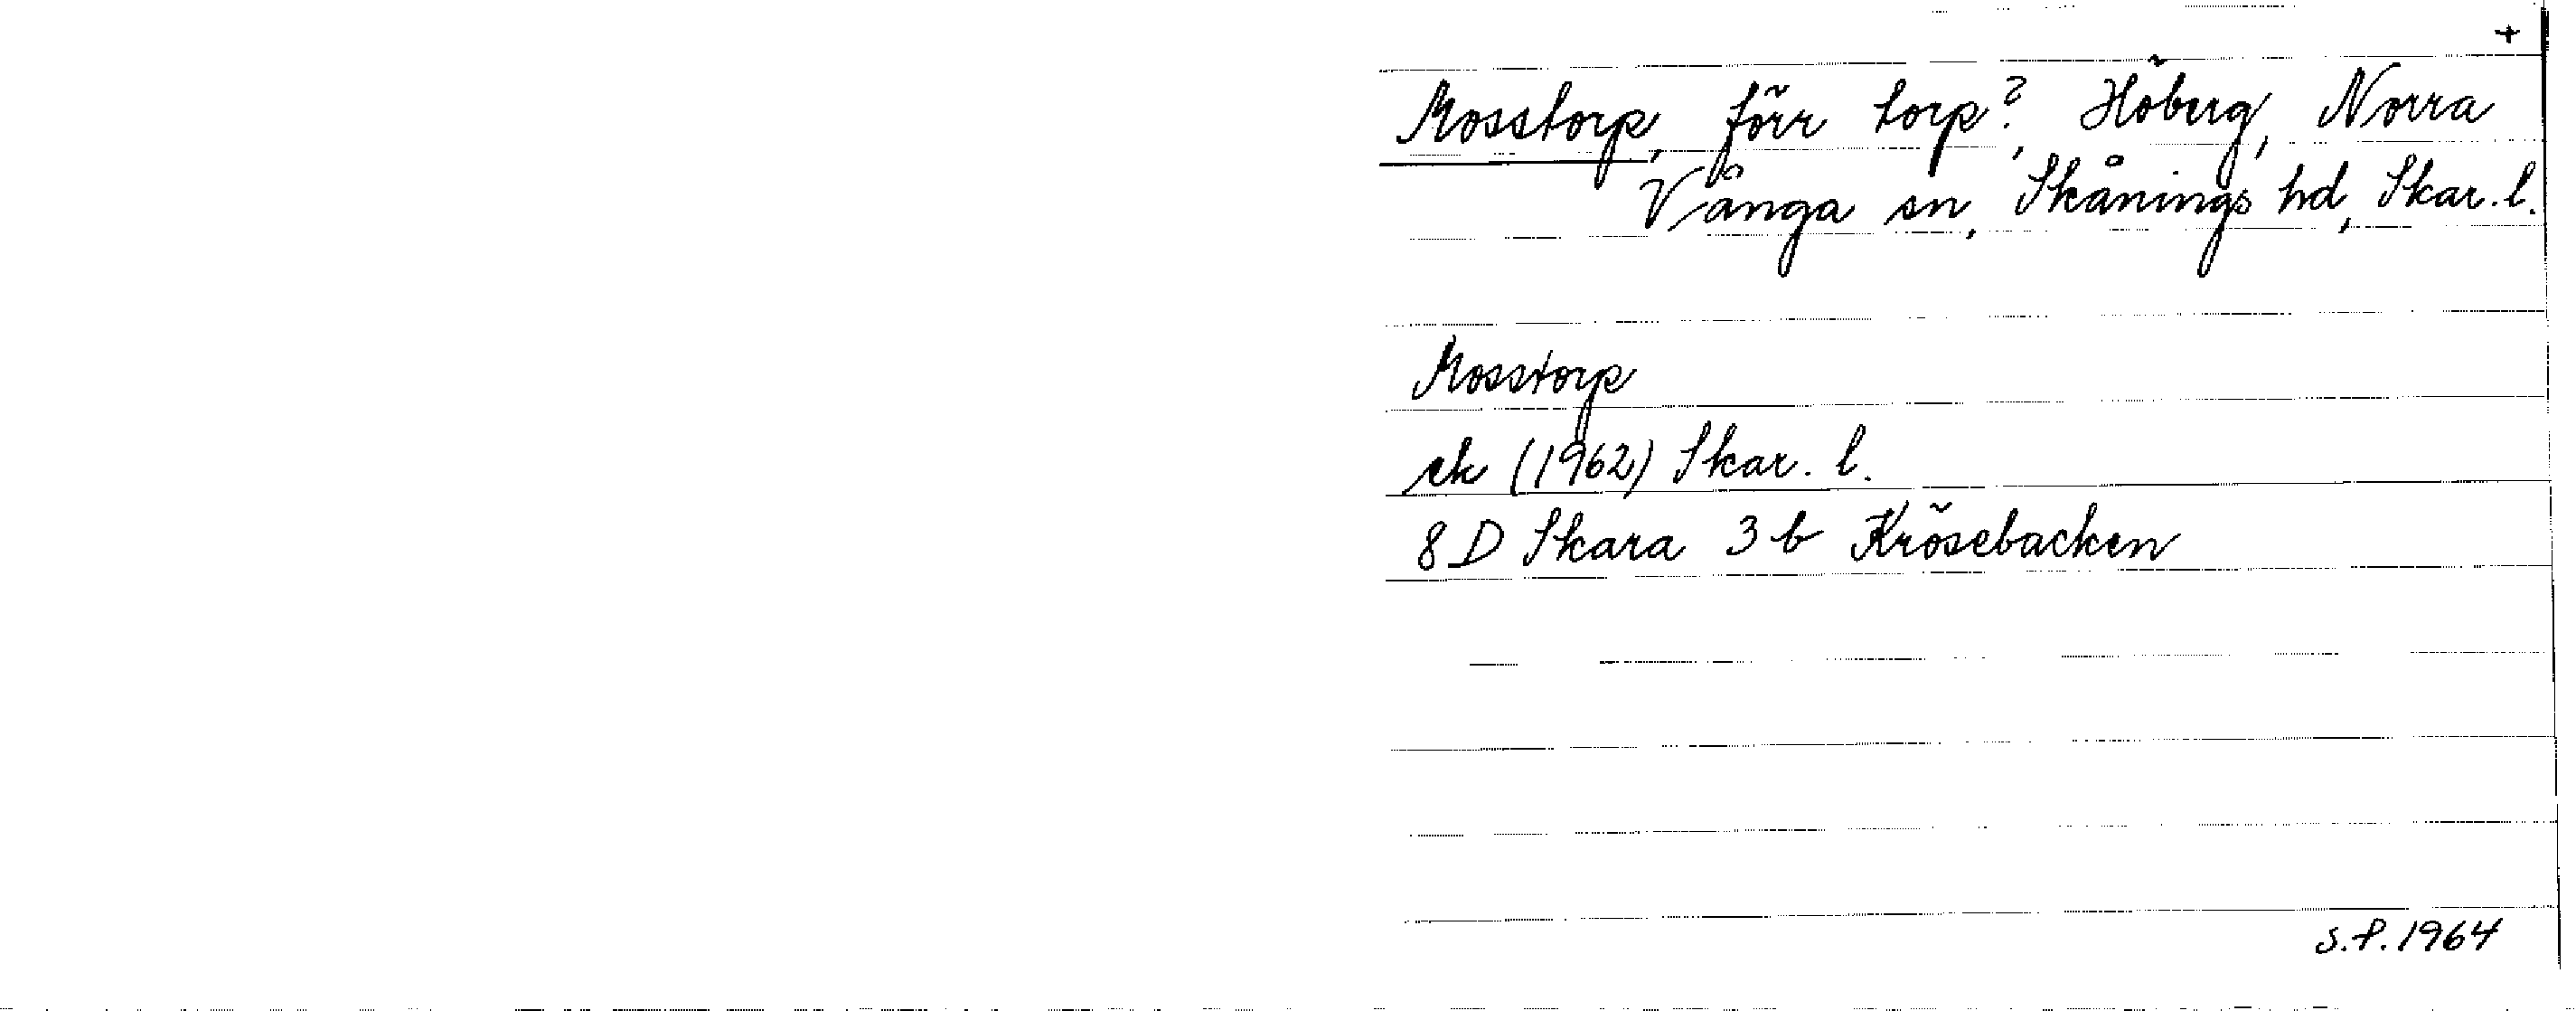 +
Mosstorp, förr torp?, Höberg, Norra
Vånga sn, Skånings hd, Skar. l.
Mosstorp
ek (1962) Skar. l.
8 D Skara 3 b Krösebacken
S.P. 1964